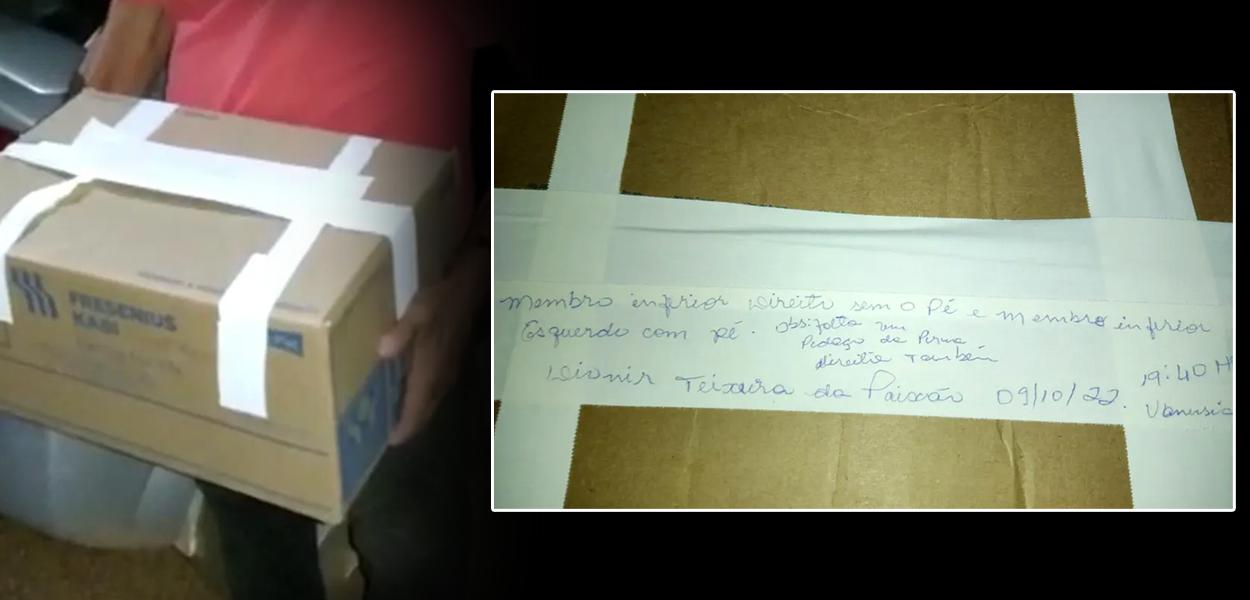 FRESENIUS
KABI
membro inferior direito sem o Pé e membro inferior
Esquerdo com pé. Obs: falta um
Pedaço da Perna
direita Também
Dionir Teixeira da Paixão 09/10/22.
19:40 H